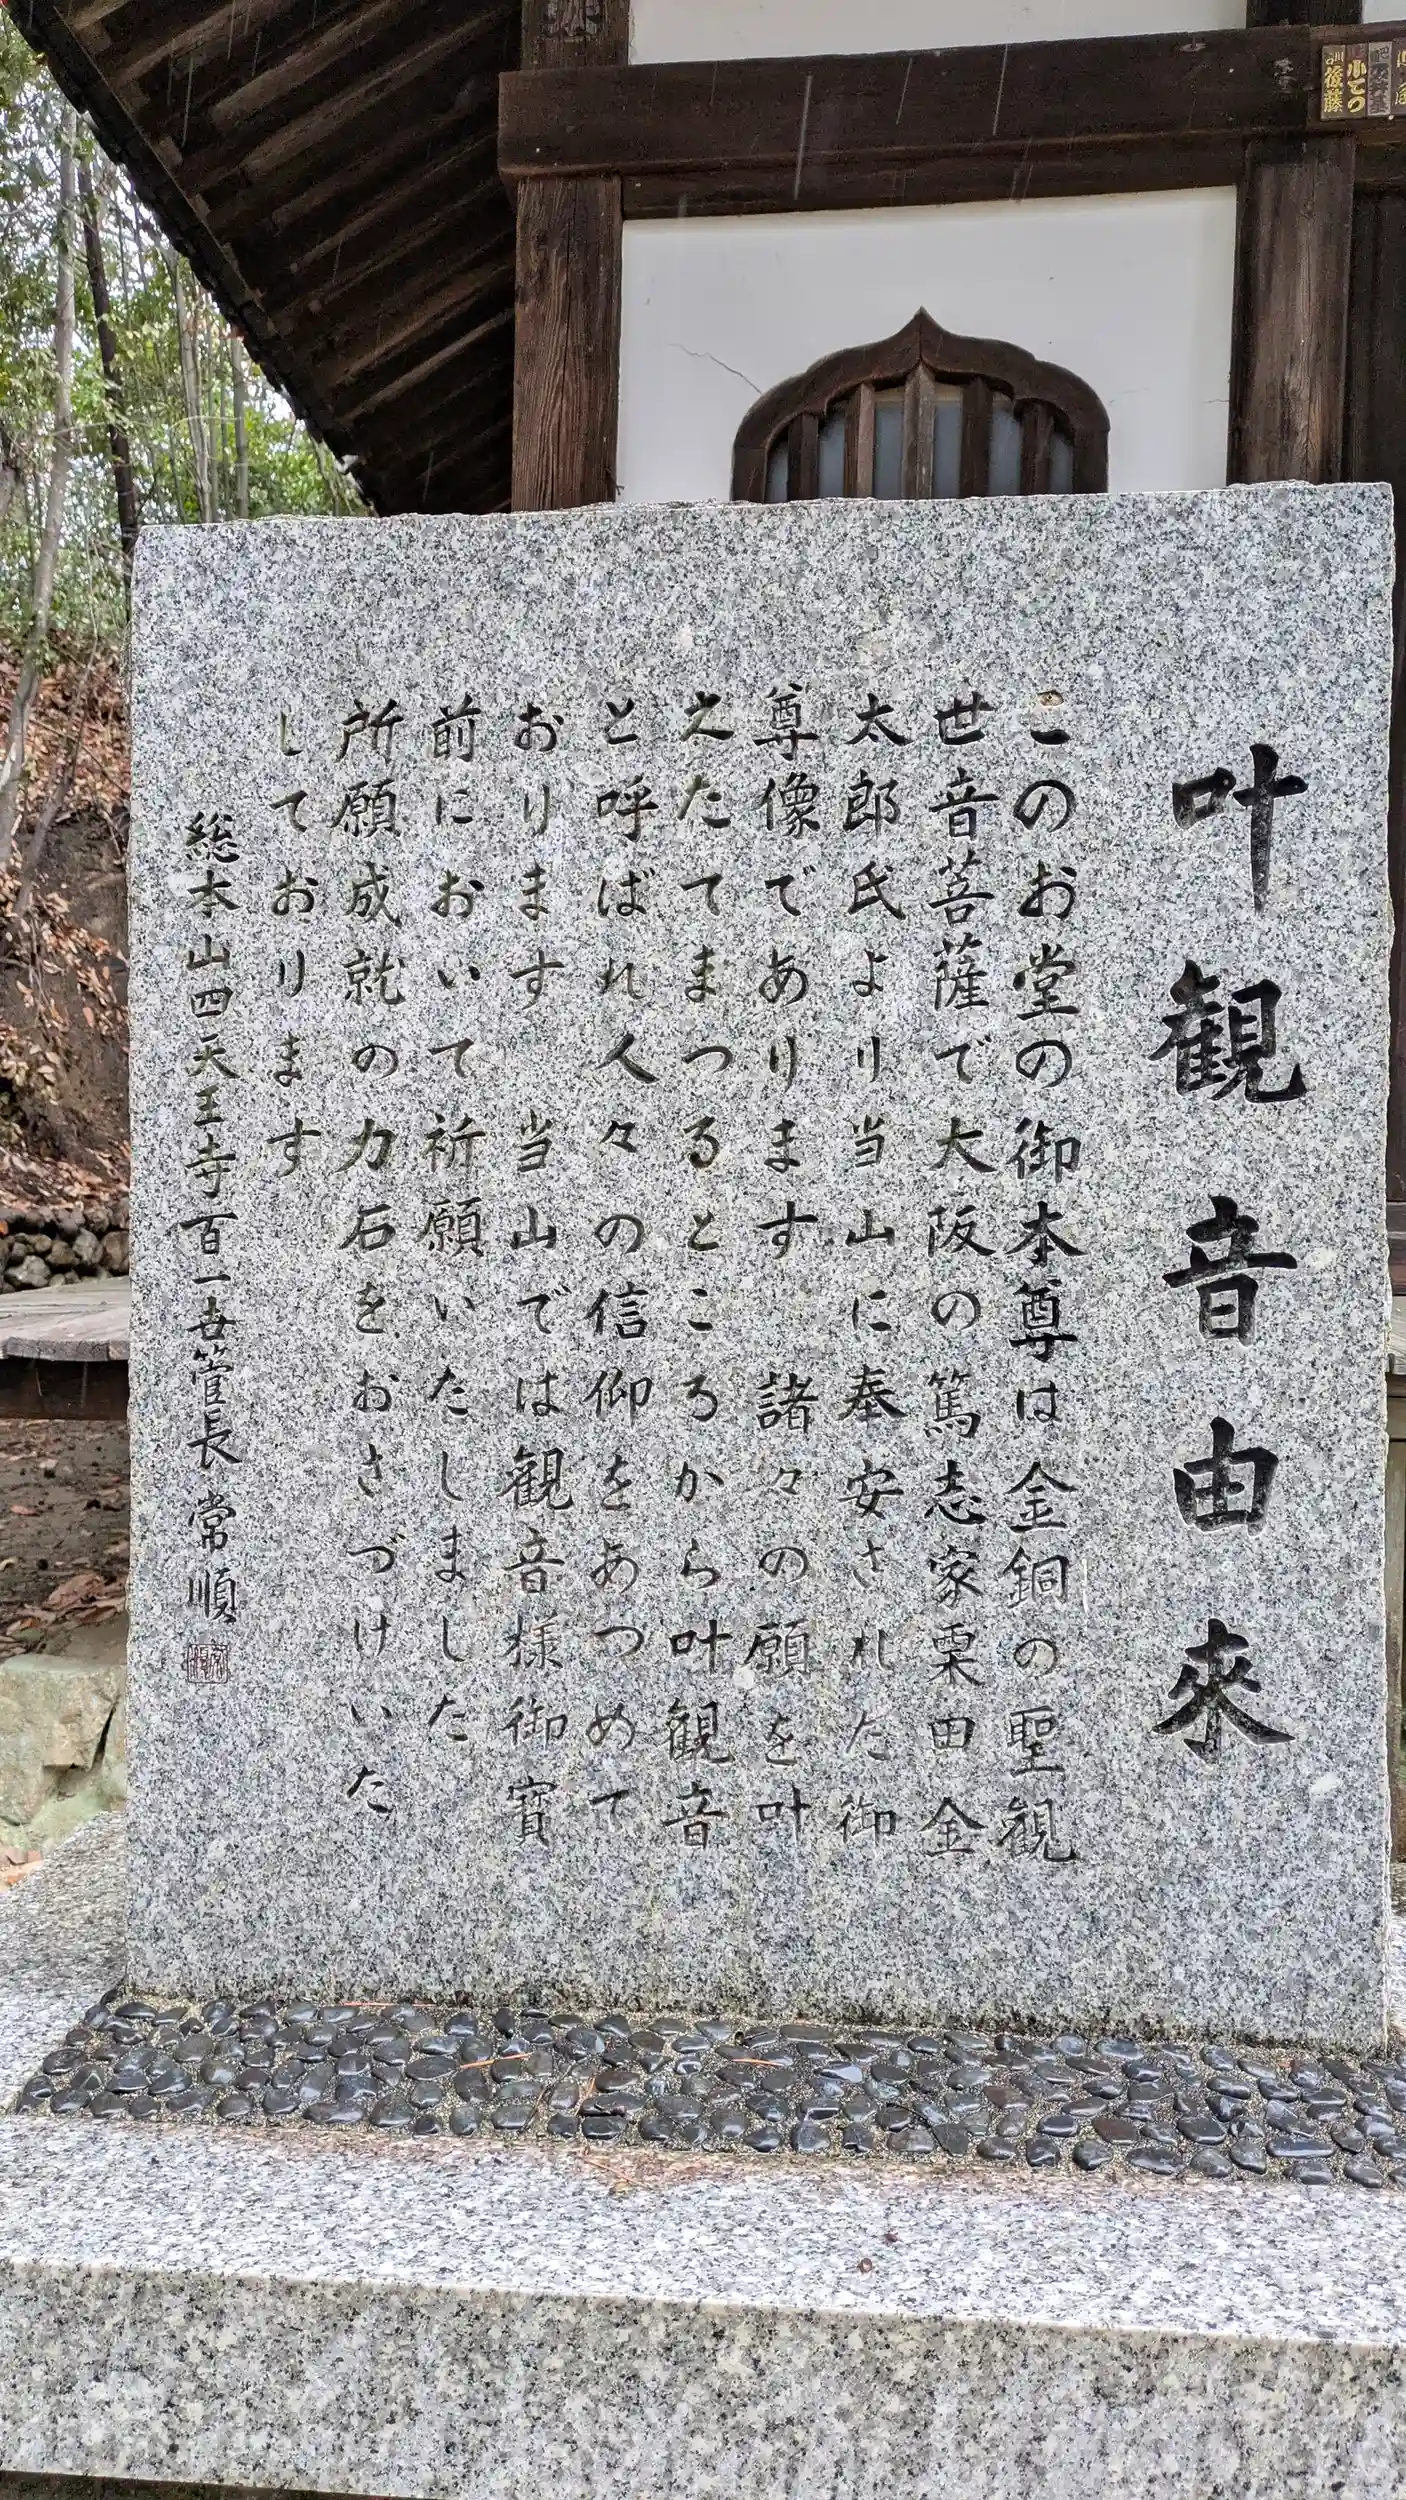 叶観音由来
このお堂の御本尊は金銅の聖観
世音菩薩で大阪の篤志家栗田金
太郎氏より当山に奉安された御
尊像であります 諸々の願を叶
えたてまつるところから叶観音
と呼ばれ人々の信仰をあつめて
おります 当山では観音様御寶
前において祈願いたしました
所願成就の力石をおさづけいた
しております
総本山四天王寺百一世管長 常順
後藤
小てつ